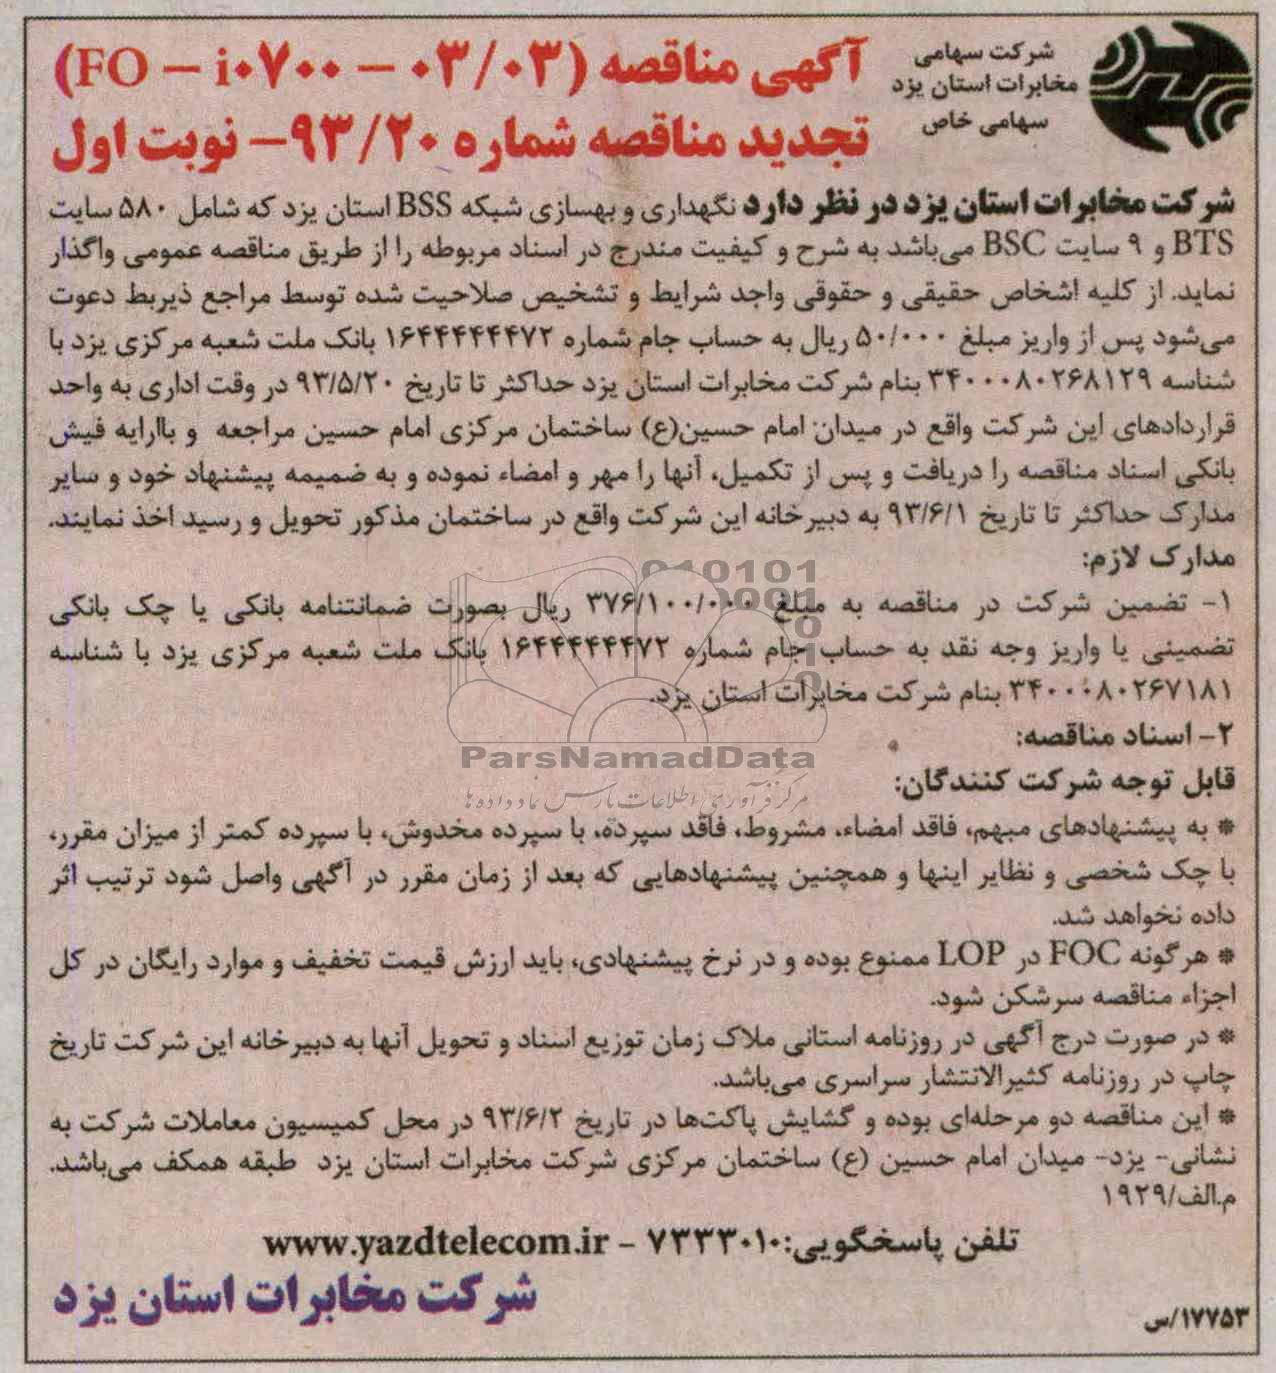 شرکت سهامی
مخابرات استان یزد
سهامی خاص
آگهی مناقصه (FO – i۰۷۰۰ – ۰۳/۰۳)
تجدید مناقصه شماره ۹۳/۲۰– نوبت اول
شرکت مخابرات استان یزد در نظر دارد نگهداری و بهسازی شبکه BSS استان یزد که شامل ۵۸۰ سایت
BTS و ۹ سایت BSC می‌باشد به شرح و کیفیت مندرج در اسناد مربوطه را از طریق مناقصه عمومی واگذار
نماید. از کلیه اشخاص حقیقی و حقوقی واجد شرایط و تشخیص صلاحیت شده توسط مراجع ذیربط دعوت
می‌شود پس از واریز مبلغ ۵۰/۰۰۰ ریال به حساب جام شماره ۱۶۴۴۴۴۴۴۷۲ بانک ملت شعبه مرکزی یزد با
شناسه ۳۴۰۰۰۸۰۲۶۸۱۲۹ بنام شرکت مخابرات استان یزد حداکثر تا تاریخ ۹۳/۵/۲۰ در وقت اداری به واحد
قراردادهای این شرکت واقع در میدان امام حسین(ع) ساختمان مرکزی امام حسین مراجعه و باارایه فیش
بانکی اسناد مناقصه را دریافت و پس از تکمیل، آنها را مهر و امضاء نموده و به ضمیمه پیشنهاد خود و سایر
مدارک حداکثر تا تاریخ ۹۳/۶/۱ به دبیرخانه این شرکت واقع در ساختمان مذکور تحویل و رسید اخذ نمایند.
مدارک لازم:
۱- تضمین شرکت در مناقصه به مبلغ ۳۷۶/۱۰۰/۰۰۰ ریال بصورت ضمانتنامه بانکی یا چک بانکی
تضمینی یا واریز وجه نقد به حساب جام شماره ۱۶۴۴۴۴۴۴۷۲ بانک ملت شعبه مرکزی یزد با شناسه
۳۴۰۰۰۸۰۲۶۷۱۸۱ بنام شرکت مخابرات استان یزد.
۲- اسناد مناقصه:
ParsNamadData
مرکز فرآوری اطلاعات پارس نماد داده ها
قابل توجه شرکت کنندگان:
* به پیشنهادهای مبهم، فاقد امضاء، مشروط، فاقد سپرده، با سپرده مخدوش، با سپرده کمتر از میزان مقرر،
با چک شخصی و نظایر اینها و همچنین پیشنهادهایی که بعد از زمان مقرر در آگهی واصل شود ترتیب اثر
داده نخواهد شد.
* هرگونه FOC در LOP ممنوع بوده و در نرخ پیشنهادی، باید ارزش قیمت تخفیف و موارد رایگان در کل
اجزاء مناقصه سرشکن شود.
* در صورت درج آگهی در روزنامه استانی ملاک زمان توزیع اسناد و تحویل آنها به دبیرخانه این شرکت تاریخ
چاپ در روزنامه کثیرالانتشار سراسری می‌باشد.
* این مناقصه دو مرحله‌ای بوده و گشایش پاکت‌ها در تاریخ ۹۳/۶/۲ در محل کمیسیون معاملات شرکت به
نشانی- یزد- میدان امام حسین (ع) ساختمان مرکزی شرکت مخابرات استان یزد طبقه همکف می‌باشد.
م.الف/۱۹۲۹
تلفن پاسخگویی: ۷۲۳۳۰۱۰ - www.yazdtelecom.ir
شرکت مخابرات استان یزد
۱۷۷۵۳/س